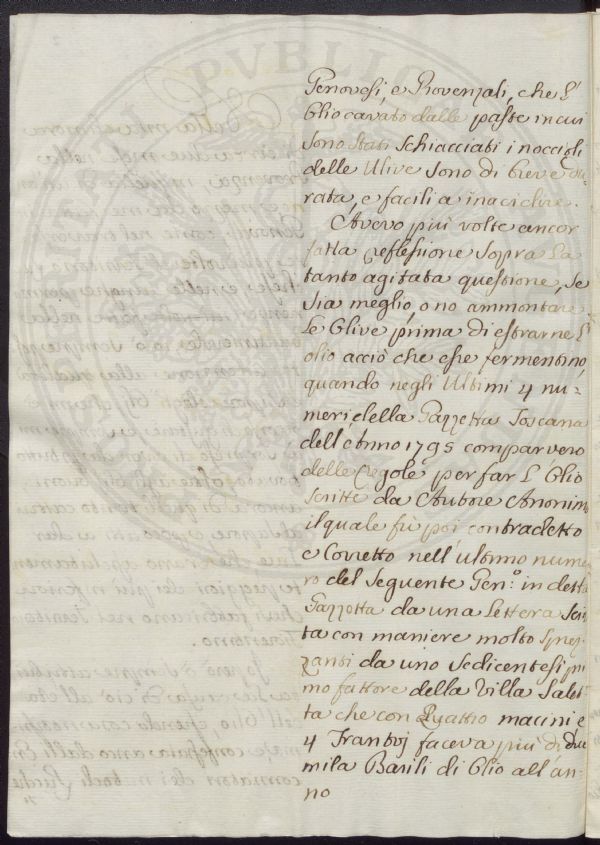 Genovesi, e Provenzali, che l'
Olio cavato dalle paste in cui
sono stati schiacciati i noccioli
delle Ulive sono di breve du=
rata, e facili a inacidire.
Avevo più volte ancor
fatta reflessione sopra la
tanto agitata questione, se
sia meglio, o no ammontare
le Olive prima di estrarne l'
olio acciò che esse fermentino,
quando negli Ultimi 4 nu=
meri della Gazzetta Toscana
dell'Anno 1795 comparvero
delle Regole per far l'Olio
scritte da Autore Anonimo
il quale fù poi contradetto
e Corretto nell'ultimo nume
ro del seguente Gen.º in detta
Gazzetta da una Lettera Scrit
ta con maniere molto sprez
zanti da uno sedicentesi pri
mo fattore della Villa Salet
ta che con Quattro macini e
4 Frantoj faceva più di due
mila Barili di Olio all'an=
no